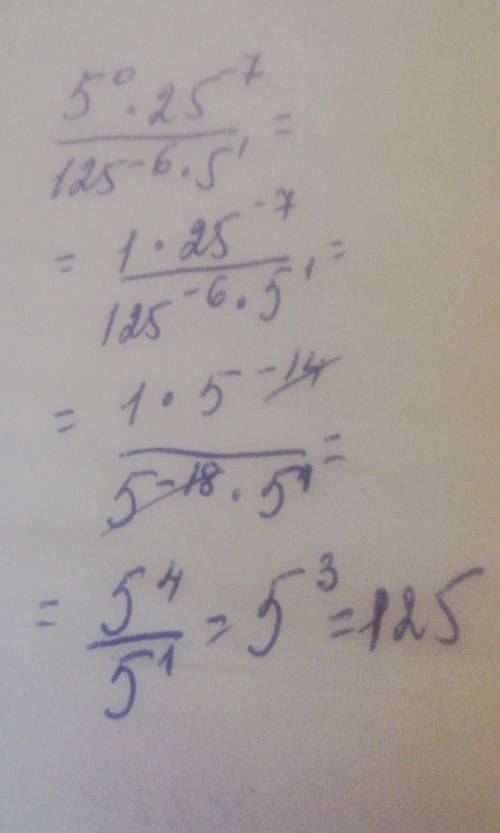 5⁰·25⁻⁷ =
125⁻⁶·5¹
= 1·25⁻⁷ =
125⁻⁶·5¹
= 1·5⁻¹⁴ =
5⁻¹⁸·5¹
= 5⁴ = 5³ = 125
5¹